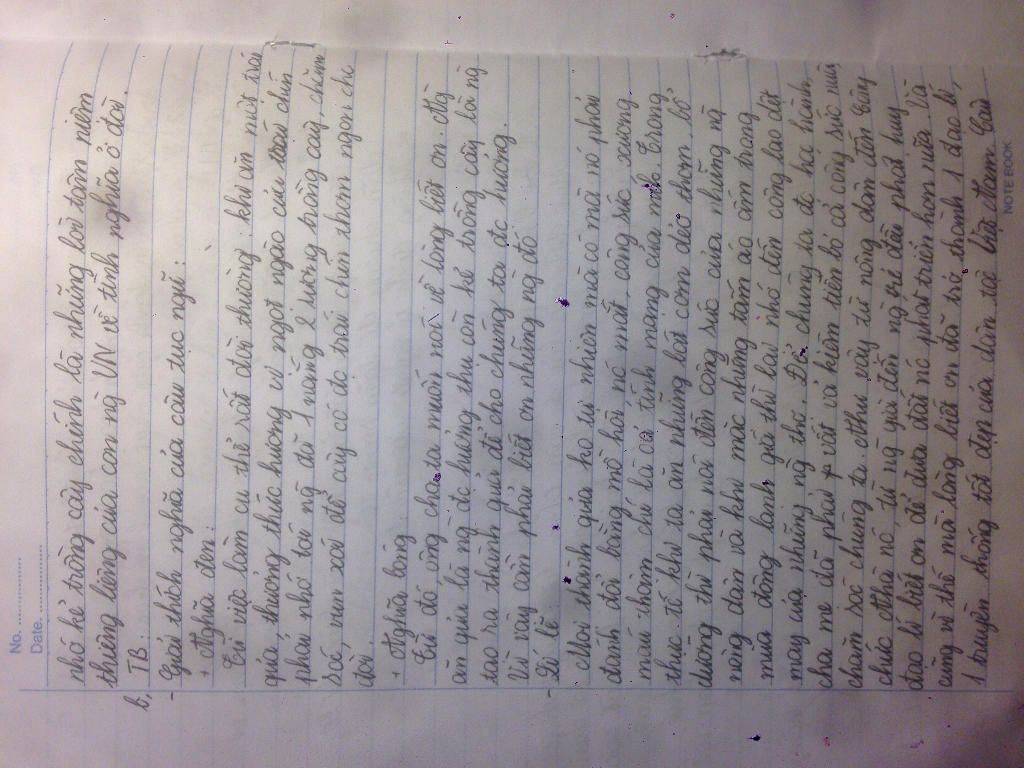 No. ............
Date. ............
nhớ kẻ trồng cây chính là những lời tâm niệm
thiêng liêng của con ng VN về tình nghĩa ở đời.
b, TB:
- Giải thích nghĩa của câu tục ngữ:
+ Nghĩa đen:
Từ việc làm cụ thể rất đời thường khi ăn một trái
quả, thưởng thức hương vị ngọt ngào của trái chín
phải nhớ tới ng đã 1 nắng 2 sương trồng cây, chăm
sóc, vun xới để cây có đc trái chín thơm ngon cho
đời.
+ Nghĩa bóng
Từ đó ông cha ta muốn nói về lòng biết ơn. Ng
ăn quả là ng đc hưởng thụ còn kẻ trồng cây là ng
tạo ra thành quả để cho chúng ta đc hưởng.
Vì vậy cần phải biết ơn những ng đó
- Lí lẽ
Mọi thành quả ko tự nhiên mà có mà nó phải
đánh đổi bằng mồ hôi nó mất công sức xương
máu thậm chí là cả tính mạng của mình. Trong
thực tế khi ta ăn những bát cơm dẻo thơm, bổ
dưỡng thì phải nói đến công sức của những ng
nông dân và khi mặc những tấm áo ấm trong
mùa đông lạnh giá thì lại nhớ đến công lao dệt
may của những ng thợ. Để chúng ta đc học hành,
cha mẹ đã phải vất vả kiếm tiền bỏ cả công sức nuôi
chăm sóc chúng ta. Như vậy từ nông dân đến công
chức Nhà nó từ ng già đến ng trẻ đều phát huy
đạo lí biết ơn để đưa đất nó phát triển hơn nữa. Và
cũng vì thế mà lòng biết ơn đã trở thành 1 đạo lí,
1 truyền thống tốt đẹp của dân tộc Việt Nam.
NOTE BOOK